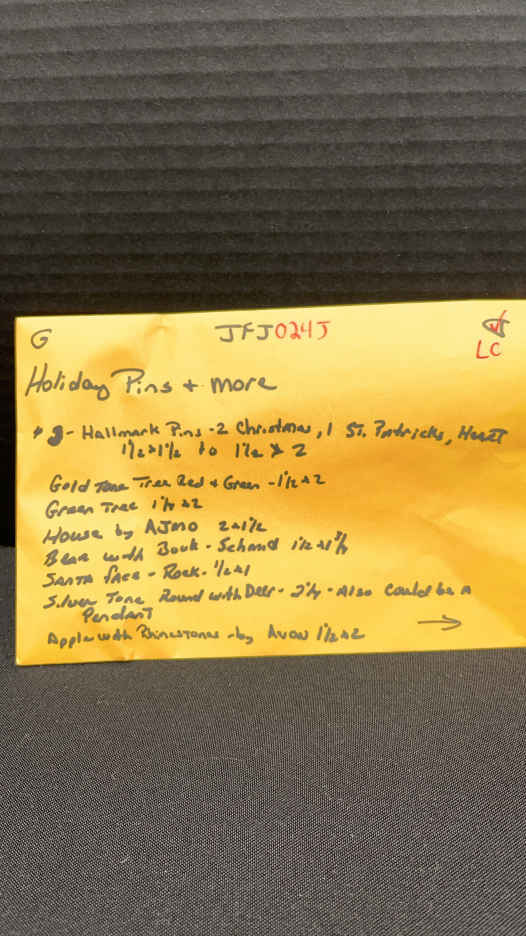 G JFJ024J
LC
Holiday Pins + more
- Hallmark Pins - 2 Christmas, 1 St. Patricks, Heart
1 1/2 x 1 1/2 to 1 1/2 x 2
Gold Tone Tree Red + Green - 1 1/2 x 2
Green Tree x 2
House by AJMO 2 x 1 1/2
Bear with Book - 1 1/2 x
Santa face - Rock - 1/2 x 1
Silver Tone Round with Deer - - Also could be a
Pendant
Apple with Rhinestones - by Avon 1 1/2 x 2 →